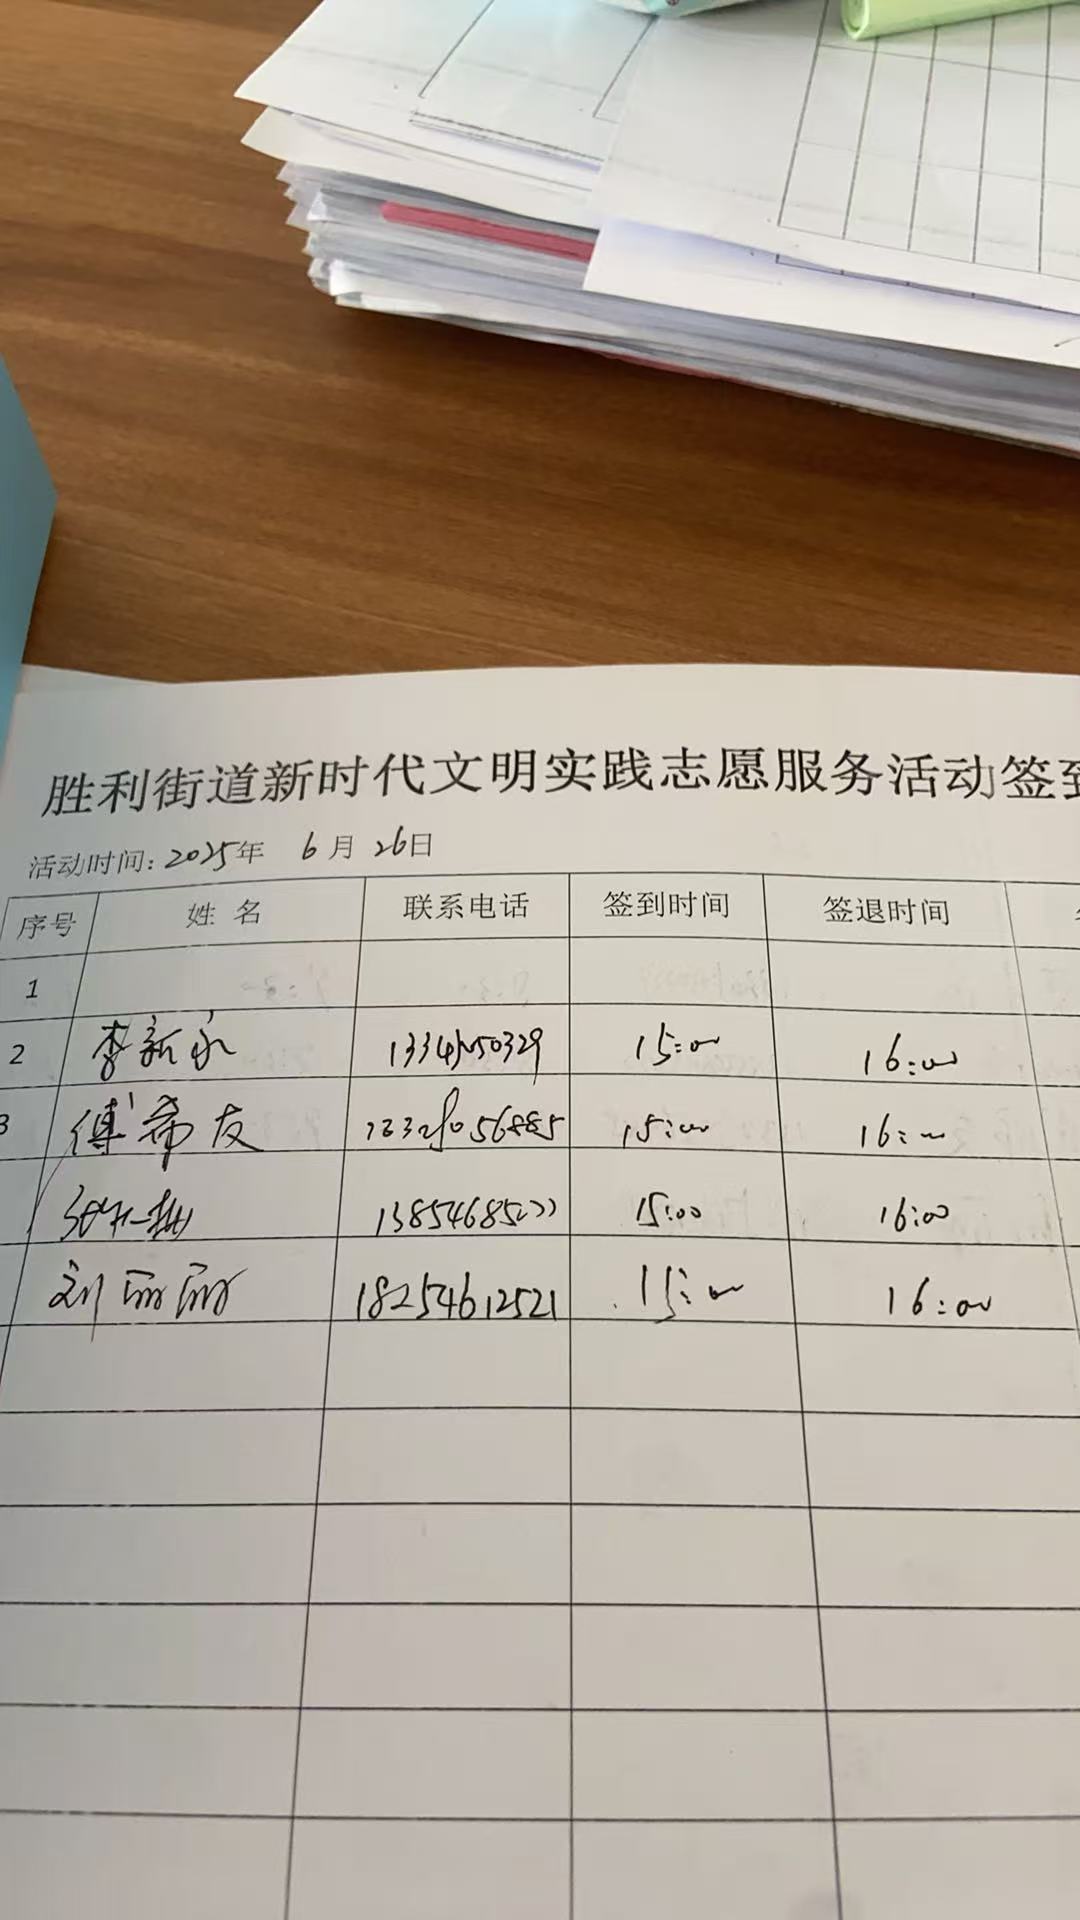 胜利街道新时代文明实践志愿服务活动签到
活动时间：2025年 6月 26日
序号 姓名 联系电话 签到时间 签退时间
1
2 李新永 15:00 16:00
3 傅希友 15:00 16:00
15:00 16:00
刘丽丽 18254612521 15:00 16:00